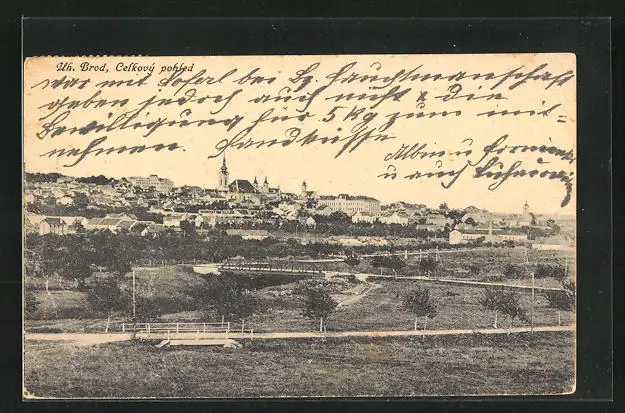 Uh. Brod, Celkový pohled
war mit bei Bz. Hauptmannschaft
geben jedoch auch nicht & die
Bewilligung für 5 Kg zum mit-
nehmen. Handküsse
Albin u
u auch